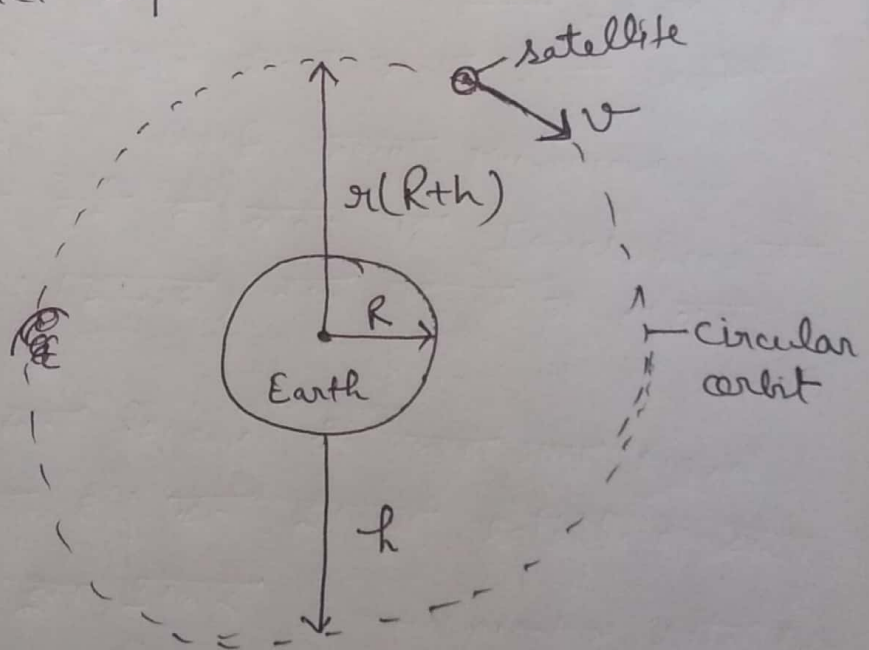 satellite
v
r(R+h)
R
Earth
circular
orbit
h